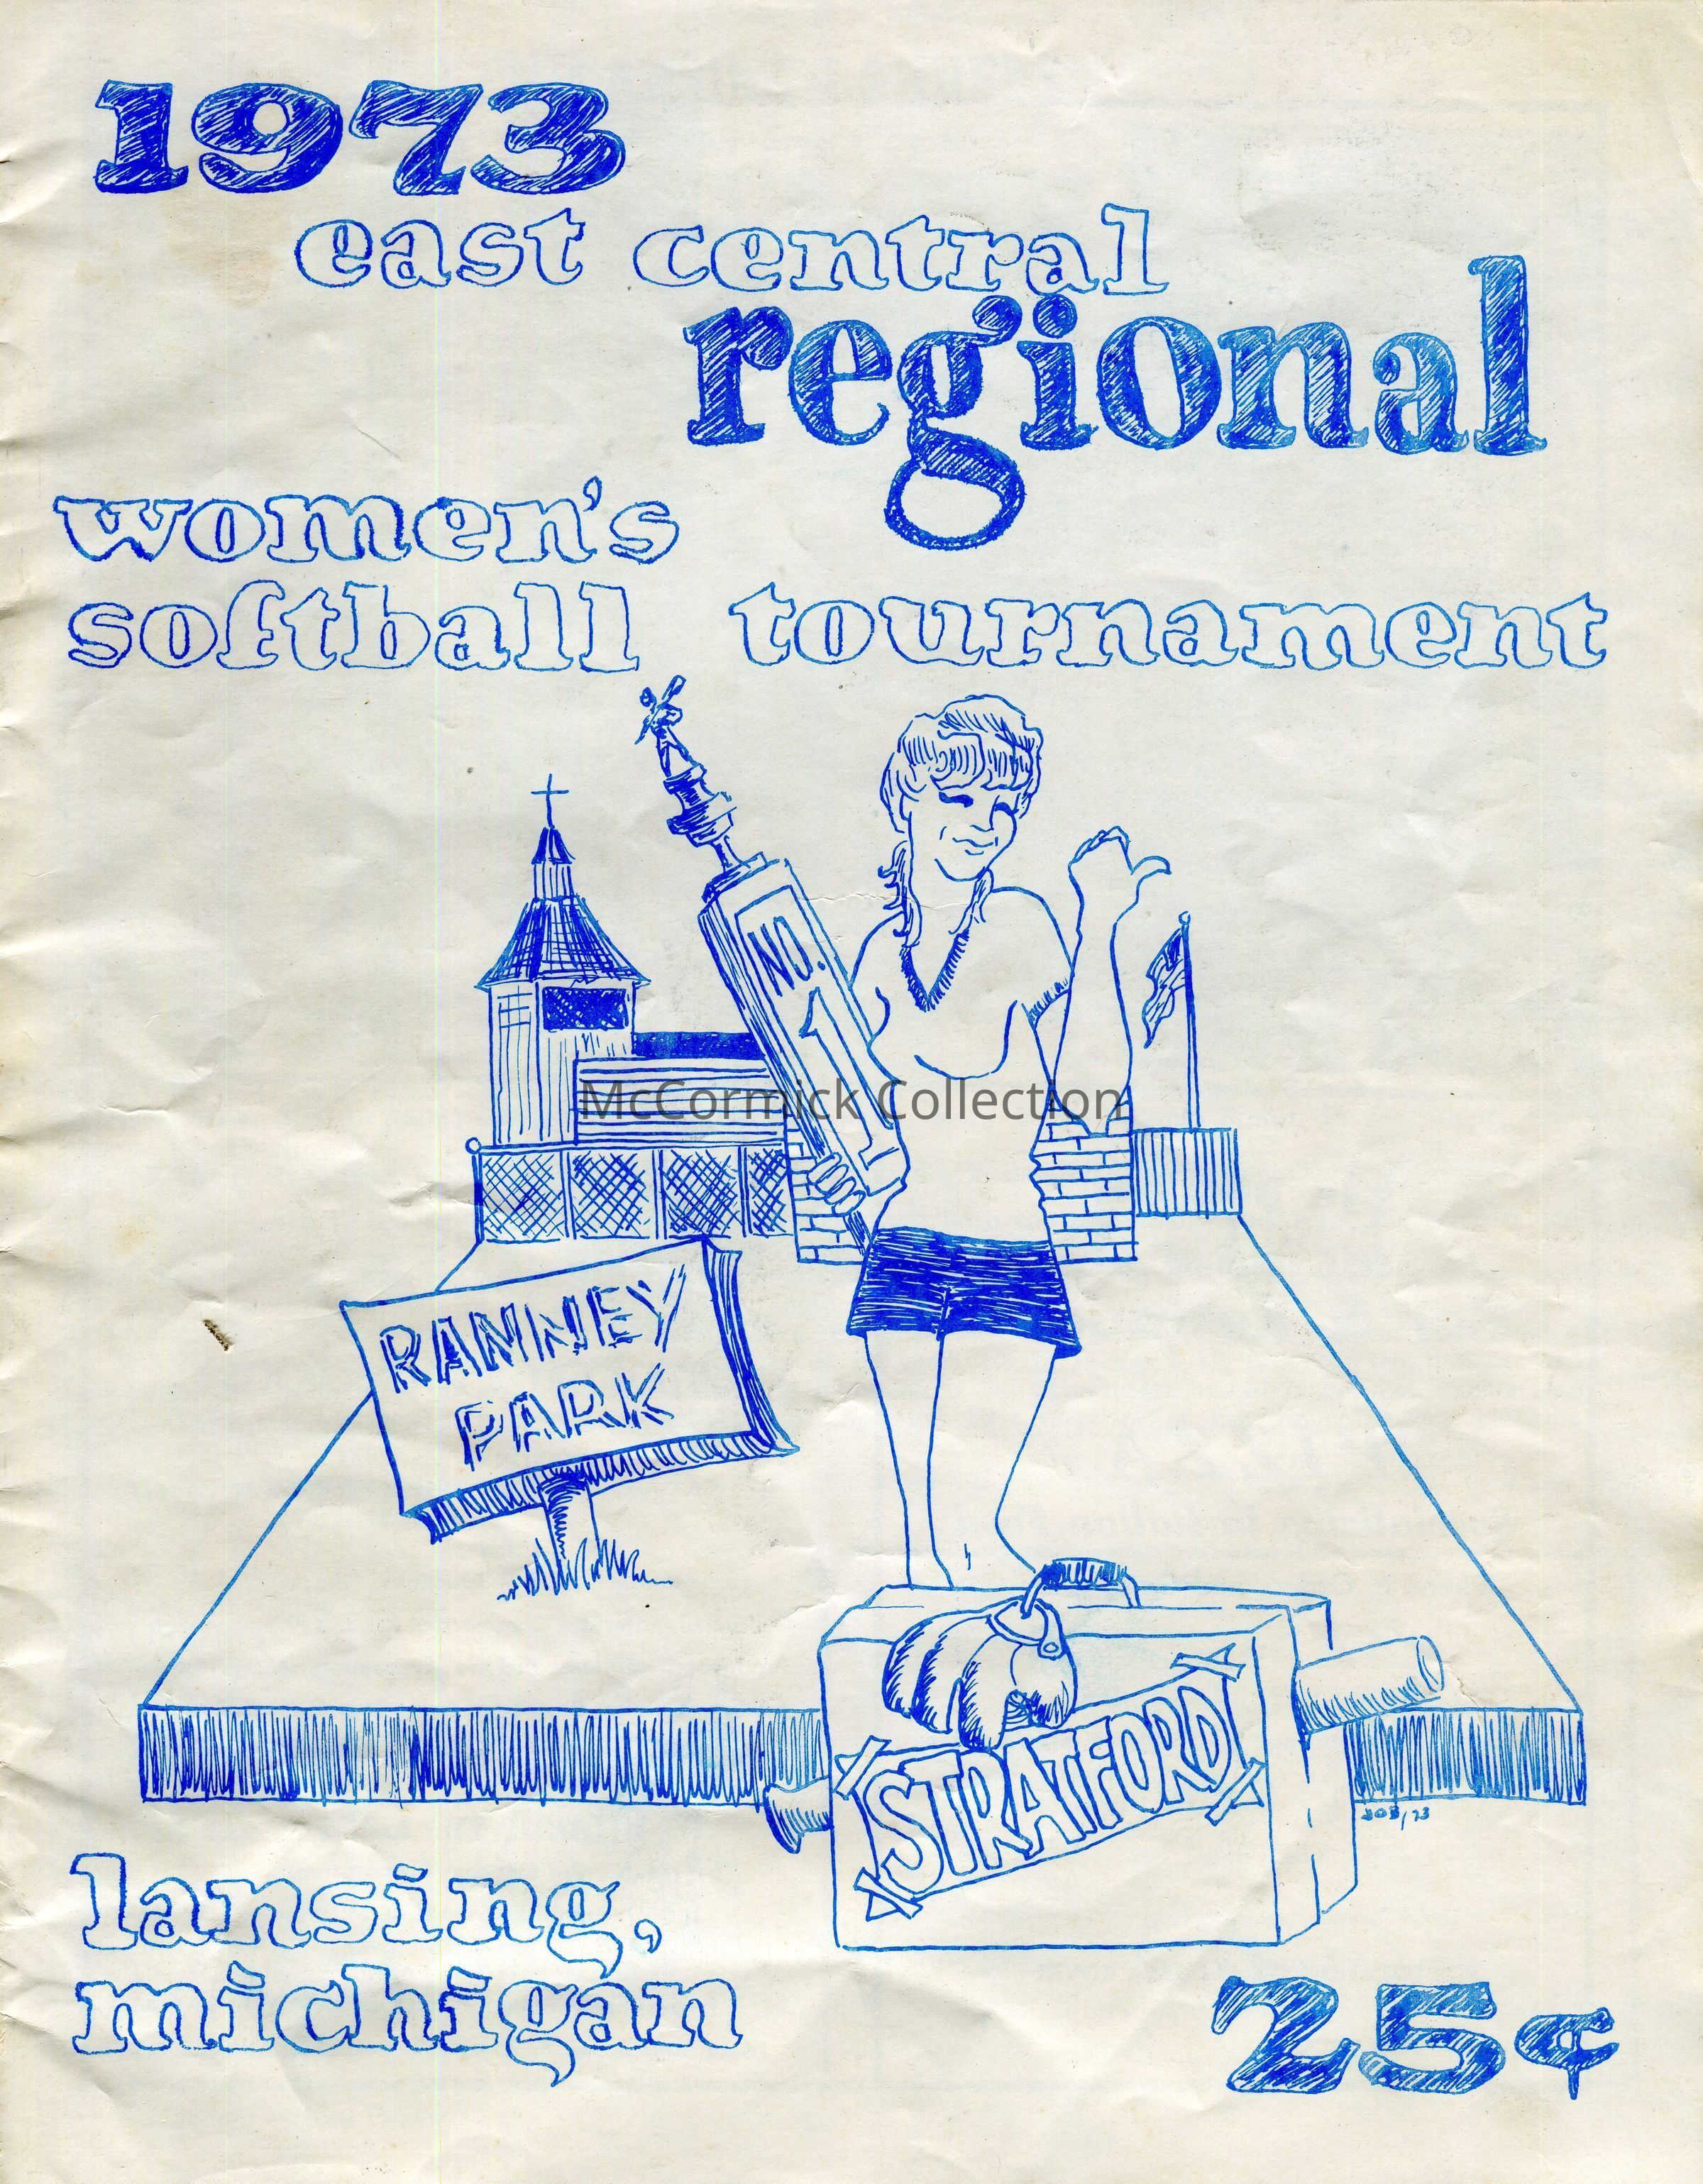 1973
east central
regional
women's
softball tournament
NO.
1
McCormick Collection
RANNEY
PARK
STRATFORD
lansing,
michigan
25¢